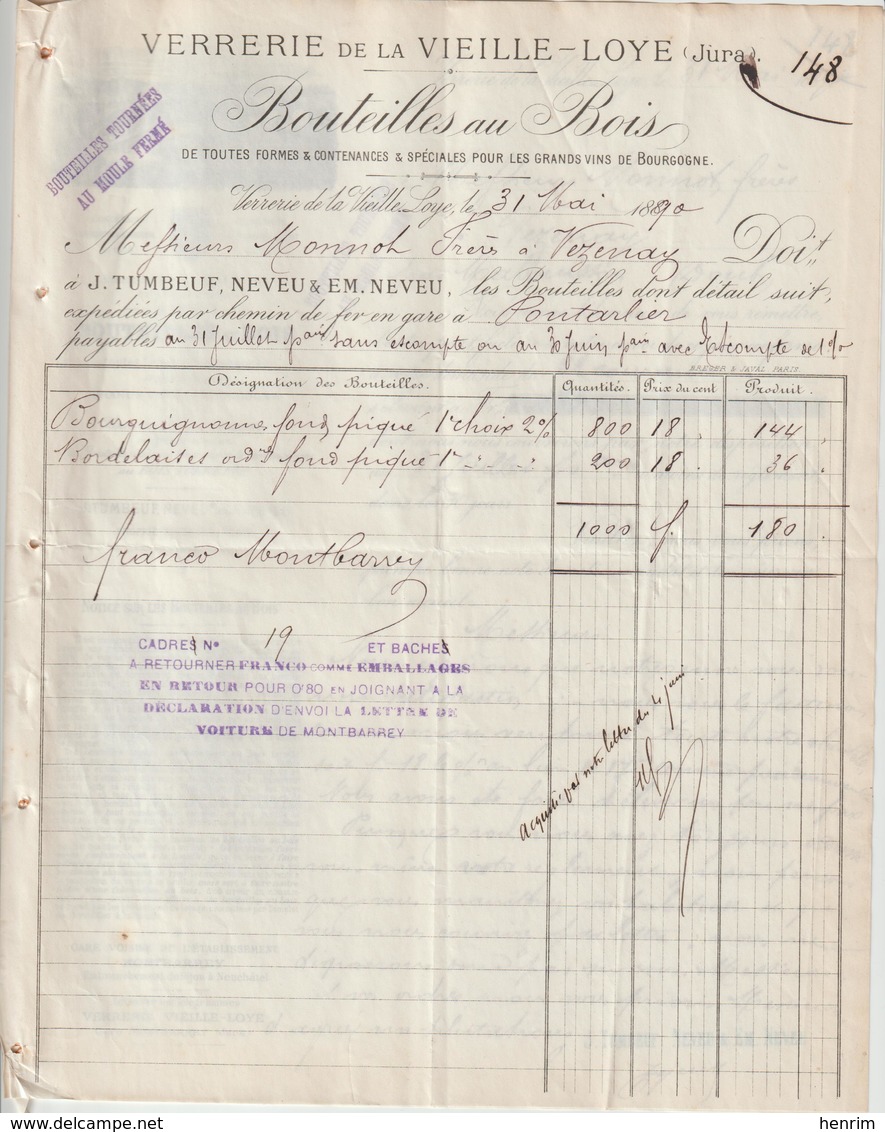 148
VERRERIE DE LA VIEILLE-LOYE (Jura).
148
BOUTEILLES TOURNÉES
AU MOULE FERMÉ
Bouteilles au Bois
DE TOUTES FORMES & CONTENANCES & SPÉCIALES POUR LES GRANDS VINS DE BOURGOGNE.
Verrerie de la Vieille-Loye, le 31 Mai 1890
Messieurs Monnot Frères à Vezenay Doit
à J. TUMBEUF, NEVEU & EM. NEVEU, les Bouteilles dont détail suit,
expédiées par chemin de fer en gare à Pontarlier
payables au 31 Juillet pain sans escompte ou au 30 Juin pain avec Escompte de 1%
BREGER & JAVAL PARIS
Désignation des Bouteilles. Quantités. Prix du cent Produit.
Bourguignonnes fond piqué 1r choix 2% 800 18 , 144 ,
Bordelaises ordres fond piqué 1r " " " 200 18 . 36 .
1000 f. 180 .
franco Montbarrey
CADRES No 19 ET BACHES
A RETOURNER FRANCO COMME EMBALLAGES
EN RETOUR POUR 0f80 EN JOIGNANT A LA
DÉCLARATION D'ENVOI LA LETTRE DE
VOITURE DE MONTBARREY
Acquitté par notre lettre du 4 juin
delcampe.net
henrim